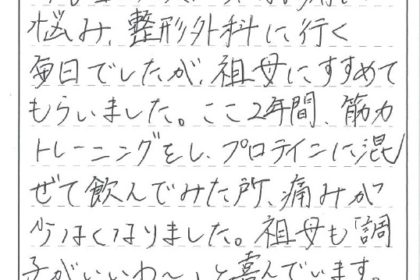 悩み、整形外科に行く
毎日でしたが、祖母にすすめて
もらいました。ここ2年間、筋力
トレーニングをし、プロテインに混
ぜて飲んでみた所、痛みが
少なくなりました。祖母も「調
子がいいわ〜」と喜んでいます。